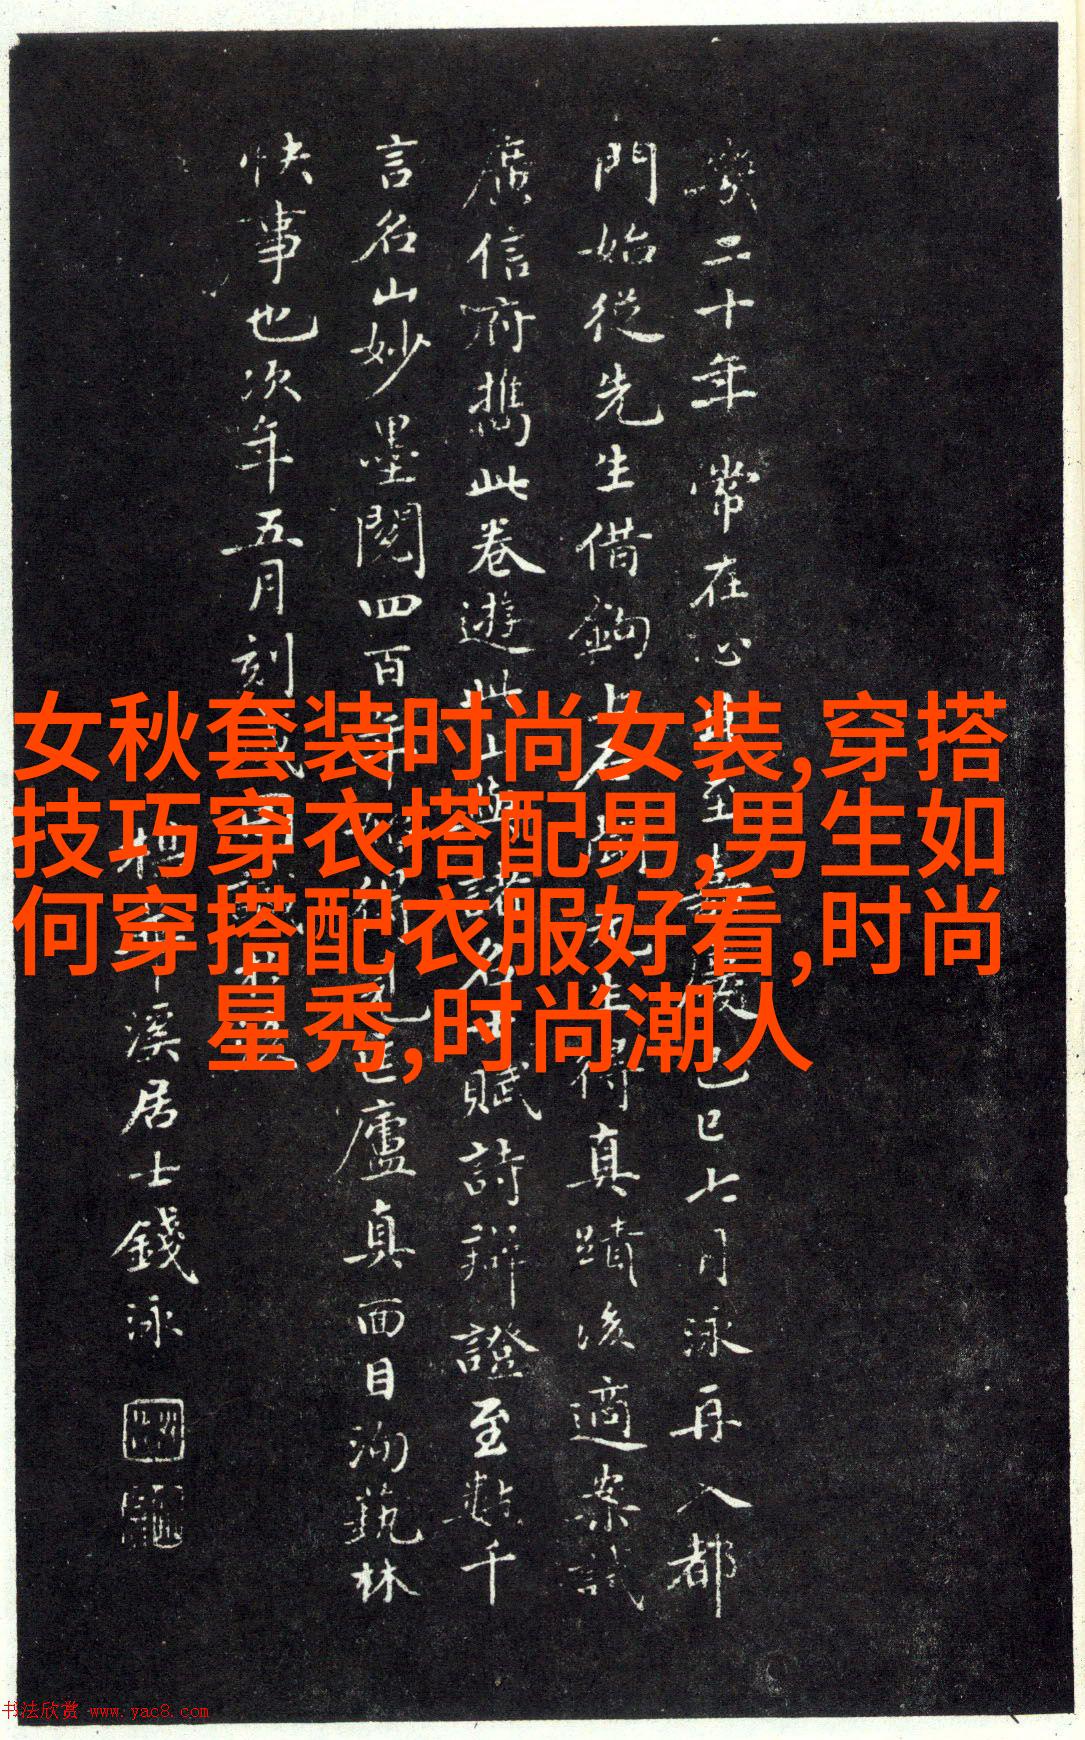 女秋套装时尚女装,穿搭
技巧穿衣搭配男,男生如
何穿搭配衣服好看,时尚
星秀,时尚潮人
二十年常在心至己巳七月泳再入都
門始從先生借鉤先生得真蹟後適案試
廣信府攜此卷遊此山與諸名士賦詩辯證至數千
言名山妙墨閱四百年廬真面目洵藝林
快事也次年五月刻成
溪居士錢泳
书法欣赏 www.yac8.com